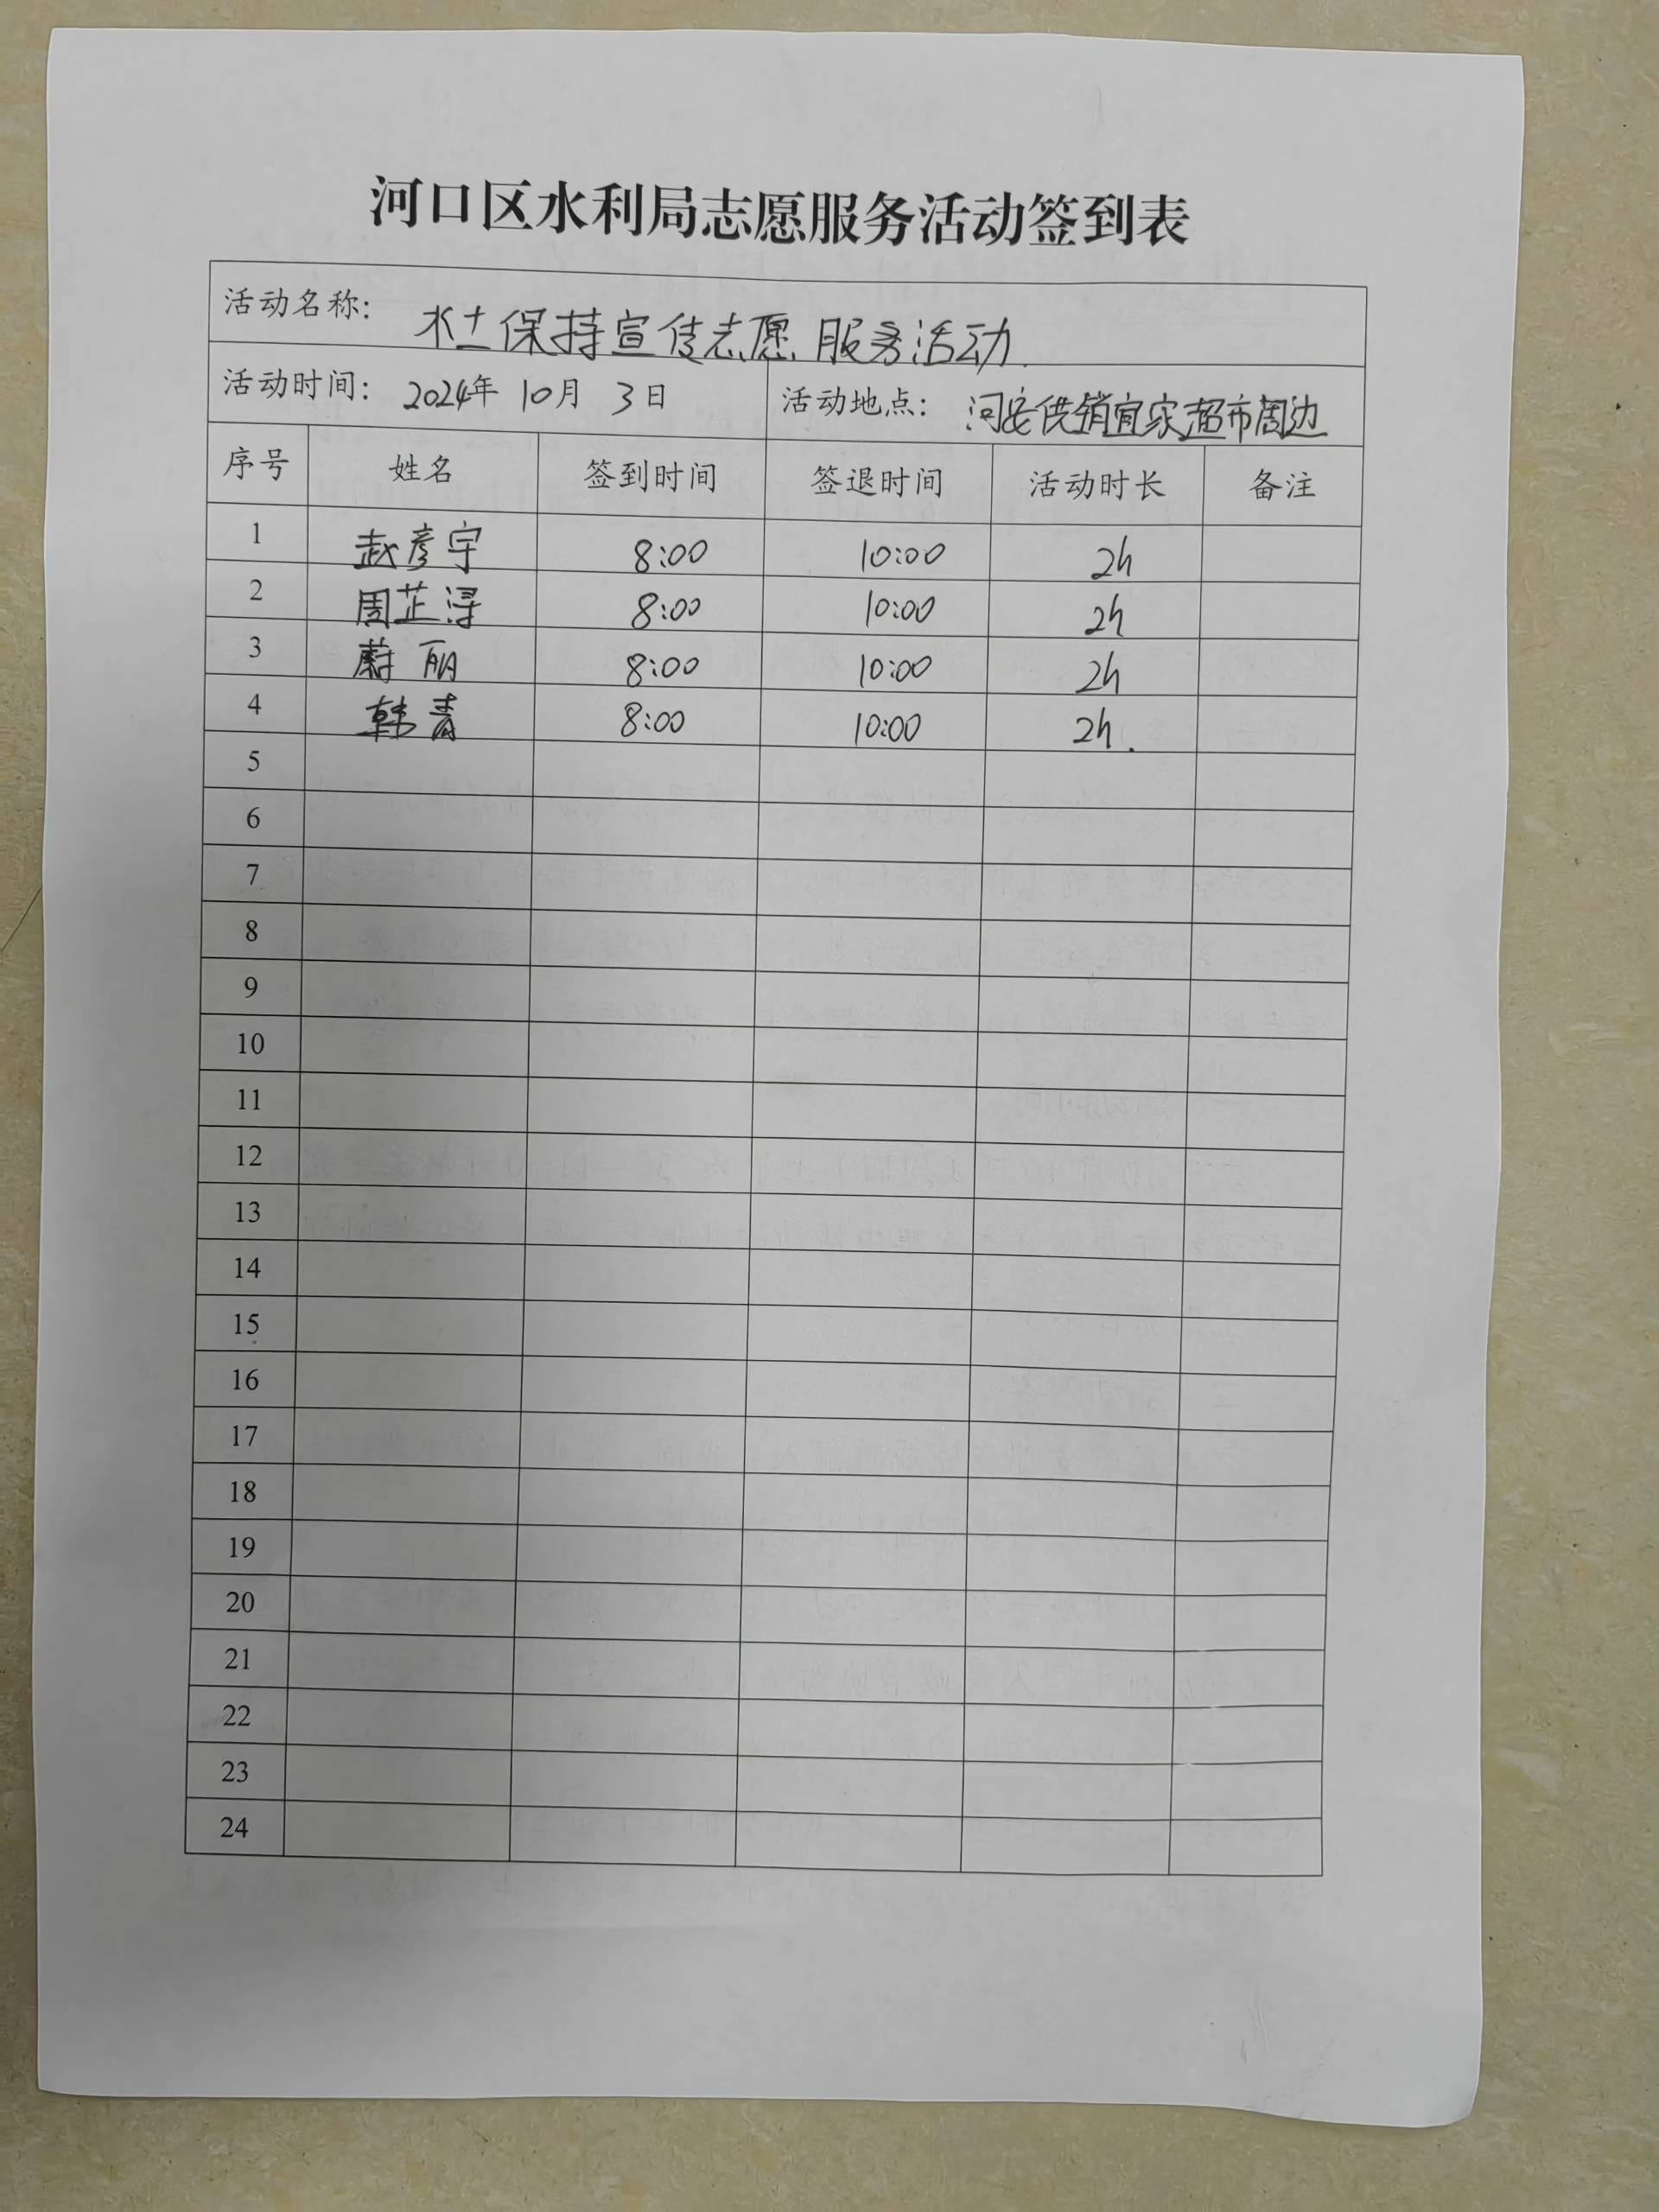 河口区水利局志愿服务活动签到表
活动名称: 水土保持宣传志愿服务活动.
活动时间: 2024年 10月 3日 活动地点: 河安供销宜家超市周边
序号 姓名 签到时间 签退时间 活动时长 备注
1 赵彦宇 8:00 10:00 2h
2 周芷浔 8:00 10:00 2h
3 蔚丽 8:00 10:00 2h
4 韩青 8:00 10:00 2h.
5
6
7
8
9
10
11
12
13
14
15
16
17
18
19
20
21
22
23
24